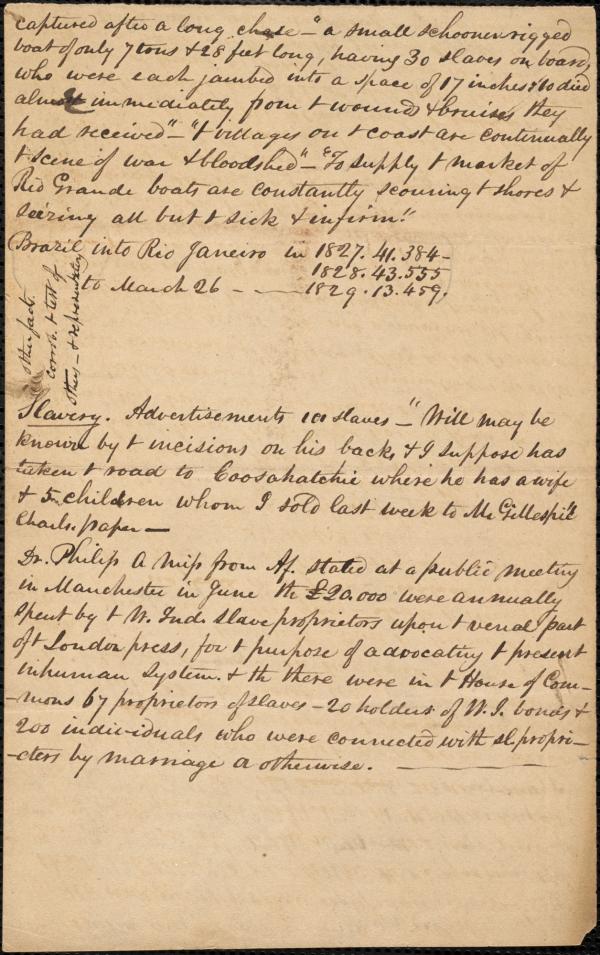 captured after a long chase – "a small schooner rigged
boat of only 7 tons & 28 feet long, having 30 slaves on board,
who were each jambed into a space of 17 inches & 10 died
almost immediately from t wounds & bruises they
had received" – "t villages on t coast are continually
t scene of war & bloodshed" – "To supply t market of
Rio Grande boats are constantly scouring t shores &
seizing all but t sick & infirm."
Brazil into Rio Janeiro in 1827. 41.384 –
1828. 43.555
to March 26 – – 1829. 13.459.
other facts.
corrob. t test of
others – & representatn
Slavery. Advertisements slaves – "Will may be
known by t incisions on his back & I suppose has
taken t road to Coosahatchie where he has a wife
& 5 children whom I sold last week to Mr Gillespie"
Charls. paper –
Dr. Philip a mis from Af. stated at a public meeting
in Manchester in June th £20,000 were annually
spent by t W. Ind. slave proprietors upon t venal part
of t London press, for t purpose of advocating t present
inhuman system. & th there were in t House of Com-
-mons 67 proprietors of slaves – 20 holders of W. I. bonds &
200 individuals who were connected with sl. propri-
-eters by marriage or otherwise. –